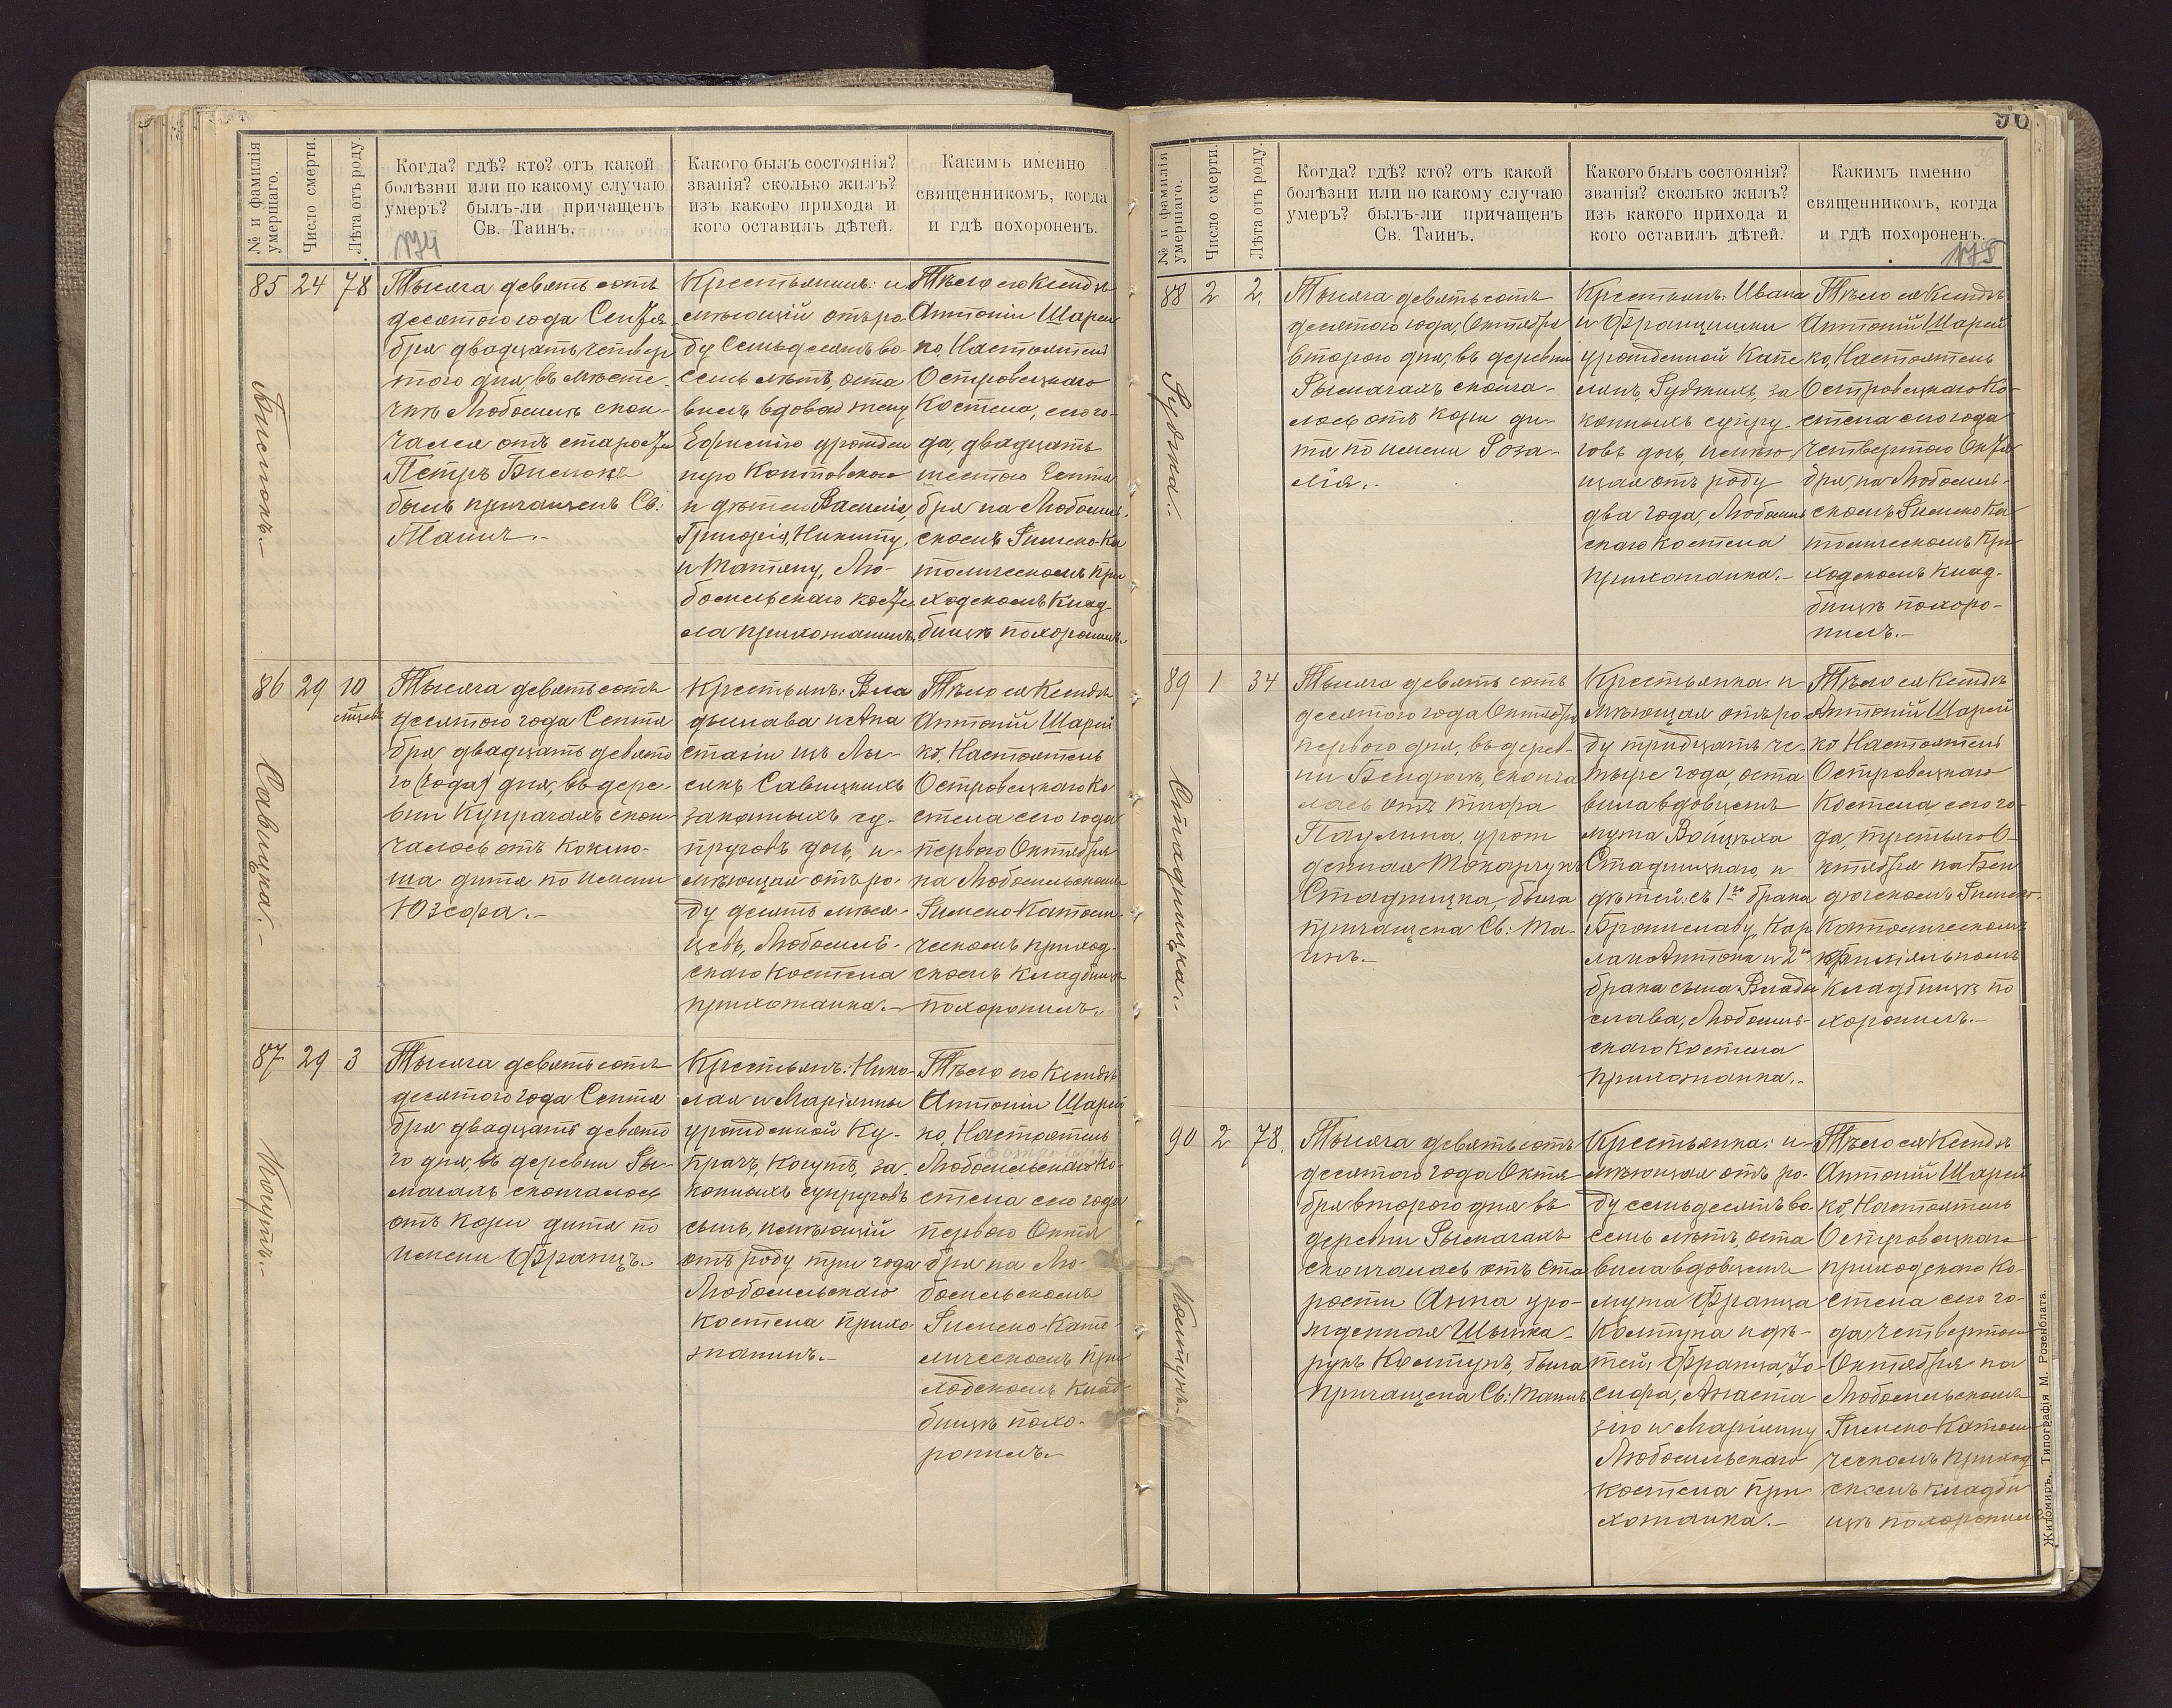 № и фамилія
умершаго.
Число смерти.
Лѣта отъ роду.
Когда? гдѣ? кто? отъ какой
болѣзни или по какому случаю
умеръ? былъ-ли причащенъ
Св. Таинъ.
174
Какого былъ состоянія?
званія? сколько жилъ?
изъ какого прихода и
кого оставилъ дѣтей.
Какимъ именно
священникомъ, когда
и гдѣ похороненъ.
85
24
78
Тысяча девятьсотъ
десятого года Сентя
бря двадцать четвер
того дня, въ мѣсте-
чкѣ Любомлѣ скон-
чался отъ старости
Петръ
былъ причащенъ Св:
Таинъ.-
Крестьянинъ: и
мѣющій отъ ро-
ду семьдесятъ во-
семь лѣтъ, оста
вилъ вдовою жену
Ефимію урожден
ную
и дѣтей Василія,
Григорія, Никиту,
и Татяну, Лю-
бомльскаго косте
ла прихожанинъ.
Тѣло его Ксендзъ
Антоній Шарей
ко, Настоятель
Островецкаго
Костела, сего го-
да, двадцать
шестого Сентя
бря на Любомль-
скомъ Римско-Ка
толическомъ при
ходскомъ клад-
бищѣ похоронилъ.
86
29
10
мѣсяц
Савицка.-
Тысяча девятьсотъ
десятого года Сентя
бря двадцать девято
го (года) дня, въ дере-
вни Купрачахъ скон-
чалось отъ коклю-
ша дитя по имени
Юзефа.-
Крестьянъ: Вла
дислава и Ана
стазіи изъ Лы-
сякъ Савицкихъ
законныхъ су-
пруговъ дочь, и-
мѣющая отъ ро-
ду десять мѣся-
цевъ, Любомль-
скаго костела
прихожанка.-
Тѣло ея Ксендзъ
Антоній Шарей
ко, Настоятель
Островецкаго Ко
стела сего года
перваго Октября
на Любомльскомъ
Римско Католи-
ческомъ приход-
скомъ кладбищѣ
похоронилъ.-
87
29
3
Когутъ.-
Тысяча девятьсотъ
десятого года Сентя
бря двадцать девято
го дня, въ деревни Ры-
мачахъ скончалось
отъ кори дитя по
имени Францъ.-
Крестьянъ: Нико-
лая и Маріянны
урожденной Ку-
прачъ, Когутъ, за-
конныхъ супруговъ
сынъ, имѣющій
отъ роду три года
Любомльскаго
костела прихо
жанинъ.-
Тѣло его Ксендзъ
Антоній Шарей
ко, Настоятель
Любомльскаго Ко-
стела сего года
перваго Октя
бря на Лю-
бомльскомъ
Римско-Като
лическомъ при
ходскомъ клад
бищѣ похо-
ронилъ.-
96
№ и фамилія
умершаго.
Число смерти.
Лѣта отъ роду.
Когда? гдѣ? кто? отъ какой
болѣзни или по какому случаю
умеръ? былъ-ли причащенъ
Св. Таинъ.
Какого былъ состоянія?
званія? сколько жилъ?
изъ какого прихода и
кого оставилъ дѣтей.
Какимъ именно
священникомъ, когда
и гдѣ похороненъ.
175
88
2
2.
Рудзка.-
Тысяча девятьсотъ
десятого года, Октября
второго дня, въ деревни
Рымачахъ сконча-
лось отъ кори ди-
тя по имени Роза-
лія.-
Крестьянъ: Ивана
и Францишки
урожденной
Рудзкихъ, за
конныхъ супру-
говъ дочь имѣю-
щая отъ роду
два года, Любомль
скаго костела
прихожанка.-
Тѣло ея Ксендзъ
Антоній Шарей
ко, Настоятель
Островецкаго Ко-
стела сего года
четвертого Октя
бря, на Любомль-
скомъ Римско Ка
толическомъ при
ходскомъ клад-
бищѣ похоро-
нилъ.-
89
1
34
Стадницка.-
Тысяча девятьсотъ
десятого года Октября
перваго дня, въ дерев-
ни Бендюгѣ, сконча
лась отъ тифа
Паулина, урож
денная
Стадницка, была
причащена Св: Та-
инъ.-
Крестьянка: и-
мѣющая отъ ро
ду тридцать че-
тыре года, оста
вила вдовцемъ
мужа Войцѣха
Стадницкаго, и
дѣтей: съ 1го брака
Брониславу, Кар
ла и Антона и 2го
брака сына Влади
слава, Любомль-
скаго костела
прихожанка.-
Тѣло ея Ксендзъ
Антоній Шарей
ко Настоятель
Островецкаго
Костела, сего го-
да, третьяго О-
ктября на Бен
дюгскомъ Римско-
Католическомъ
филіяльномъ
кладбищѣ по
хоронилъ.-
90
2
78.
Колтунъ.-
Тысяча девятьсотъ
десятого года Октя-
бря второго дня въ
деревни Рымачахъ
скончалась отъ ста
рости Анна уро-
жденная
Колтунъ, была
причащена Св: Таинъ.
Крестьянка: и-
мѣющая отъ ро-
ду семьдесятъ во-
семь лѣтъ, оста
вила вдовцемъ
мужа Франца
Колтуна и дѣ-
тей, Франца, Іо-
сифа, Анаста
зію и Маріянну
Любомльскаго
костела при
хожанка.-
Тѣло ея Ксендзъ
Антоній Шарей
ко, Настоятель
Островецкаго
приходскаго Ко-
стела сего го-
да четвертого
Октября на
Любомльскомъ
Римско-Католи
ческомъ приход
скомъ кладби
щѣ похоронилъ
Житомиръ, Типографія М. Розенблата.